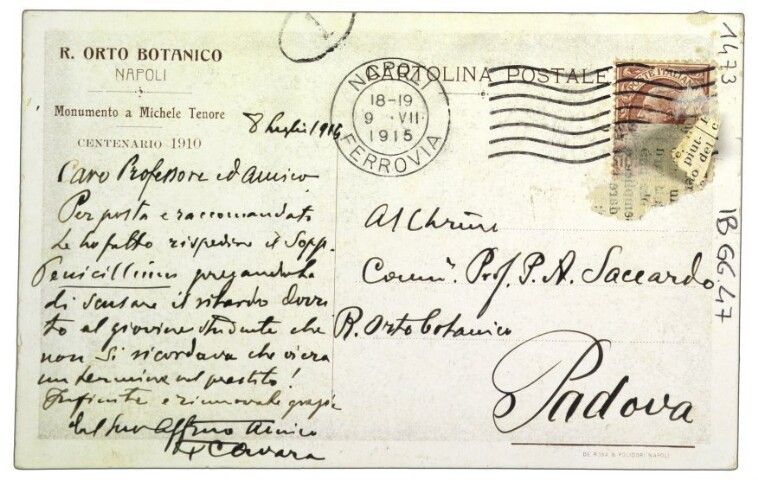 R. ORTO BOTANICO
NAPOLI
Monumento a Michele Tenore
CENTENARIO 1910
8 luglio 1915
Caro Professore ed Amico
Per posta e raccomandato
Le ho fatto rispedire il Sopp.
Penicillium pregandola
di scusare il ritardo dovu
to al giovine studente che
non si ricordava che vi era
un termine nel prestito!
Infinite e rinnovate grazie
dal suo Affmo Amico
F Cavara
CARTOLINA POSTALE
NAPOLI
18-19
9 . VII.
1915
FERROVIA
Al Chrmo
Comm. Prof. P. A. Saccardo
R. Orto botanico
Padova
1473
1B GG 47
DE ROSA & POLIDORI NAPOLI